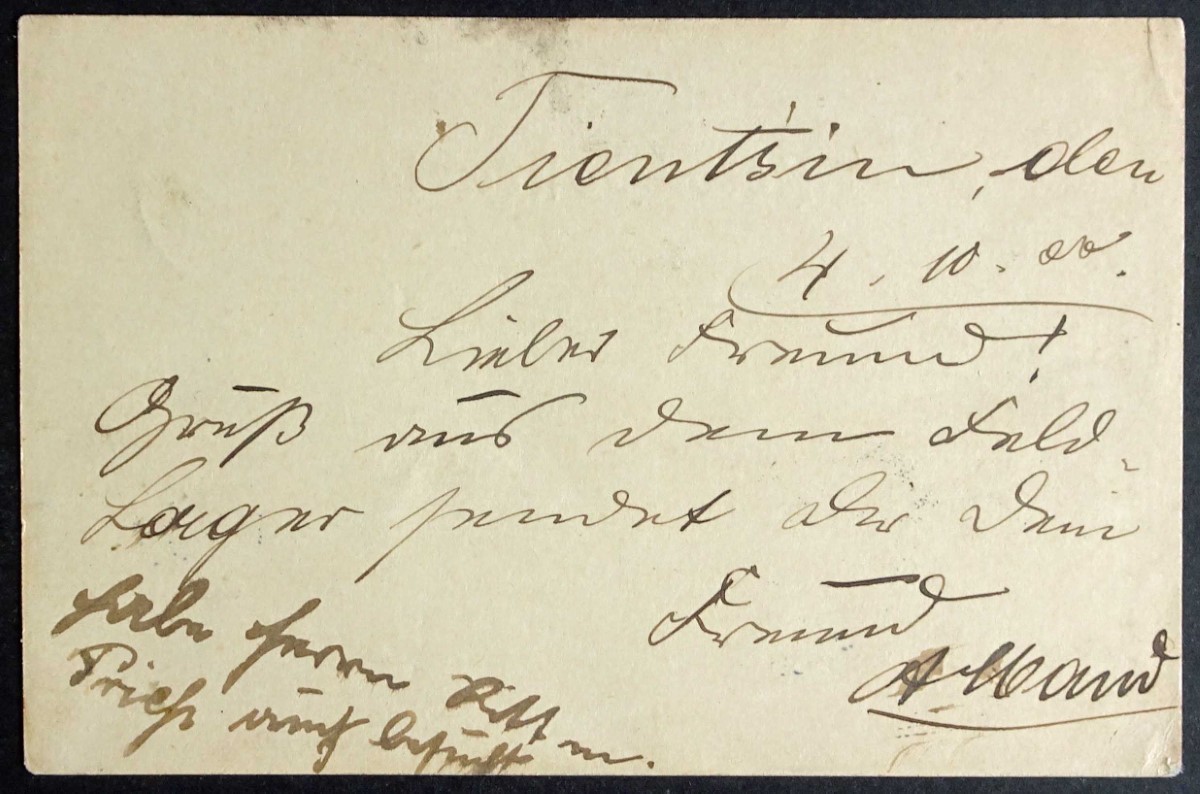 Tientsin, den
4. 10. 00.
Lieber Freund!
Gruß aus dem Feld-
Lager sendet Dir Dein
Freund
Habe Herrn
auch besucht